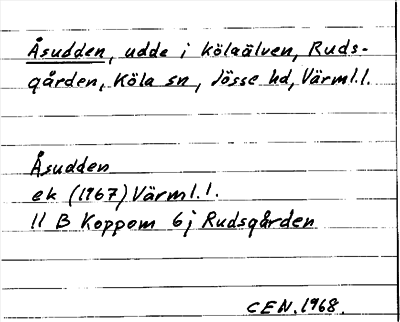 Åsudden, udde i Kölaälven, Ruds-
gården, Köla sn, Jösse hd, Värml.l.
Åsudden
ek (1967) Värml.l.
11 B Koppom 6j Rudsgården
CEN. 1968.